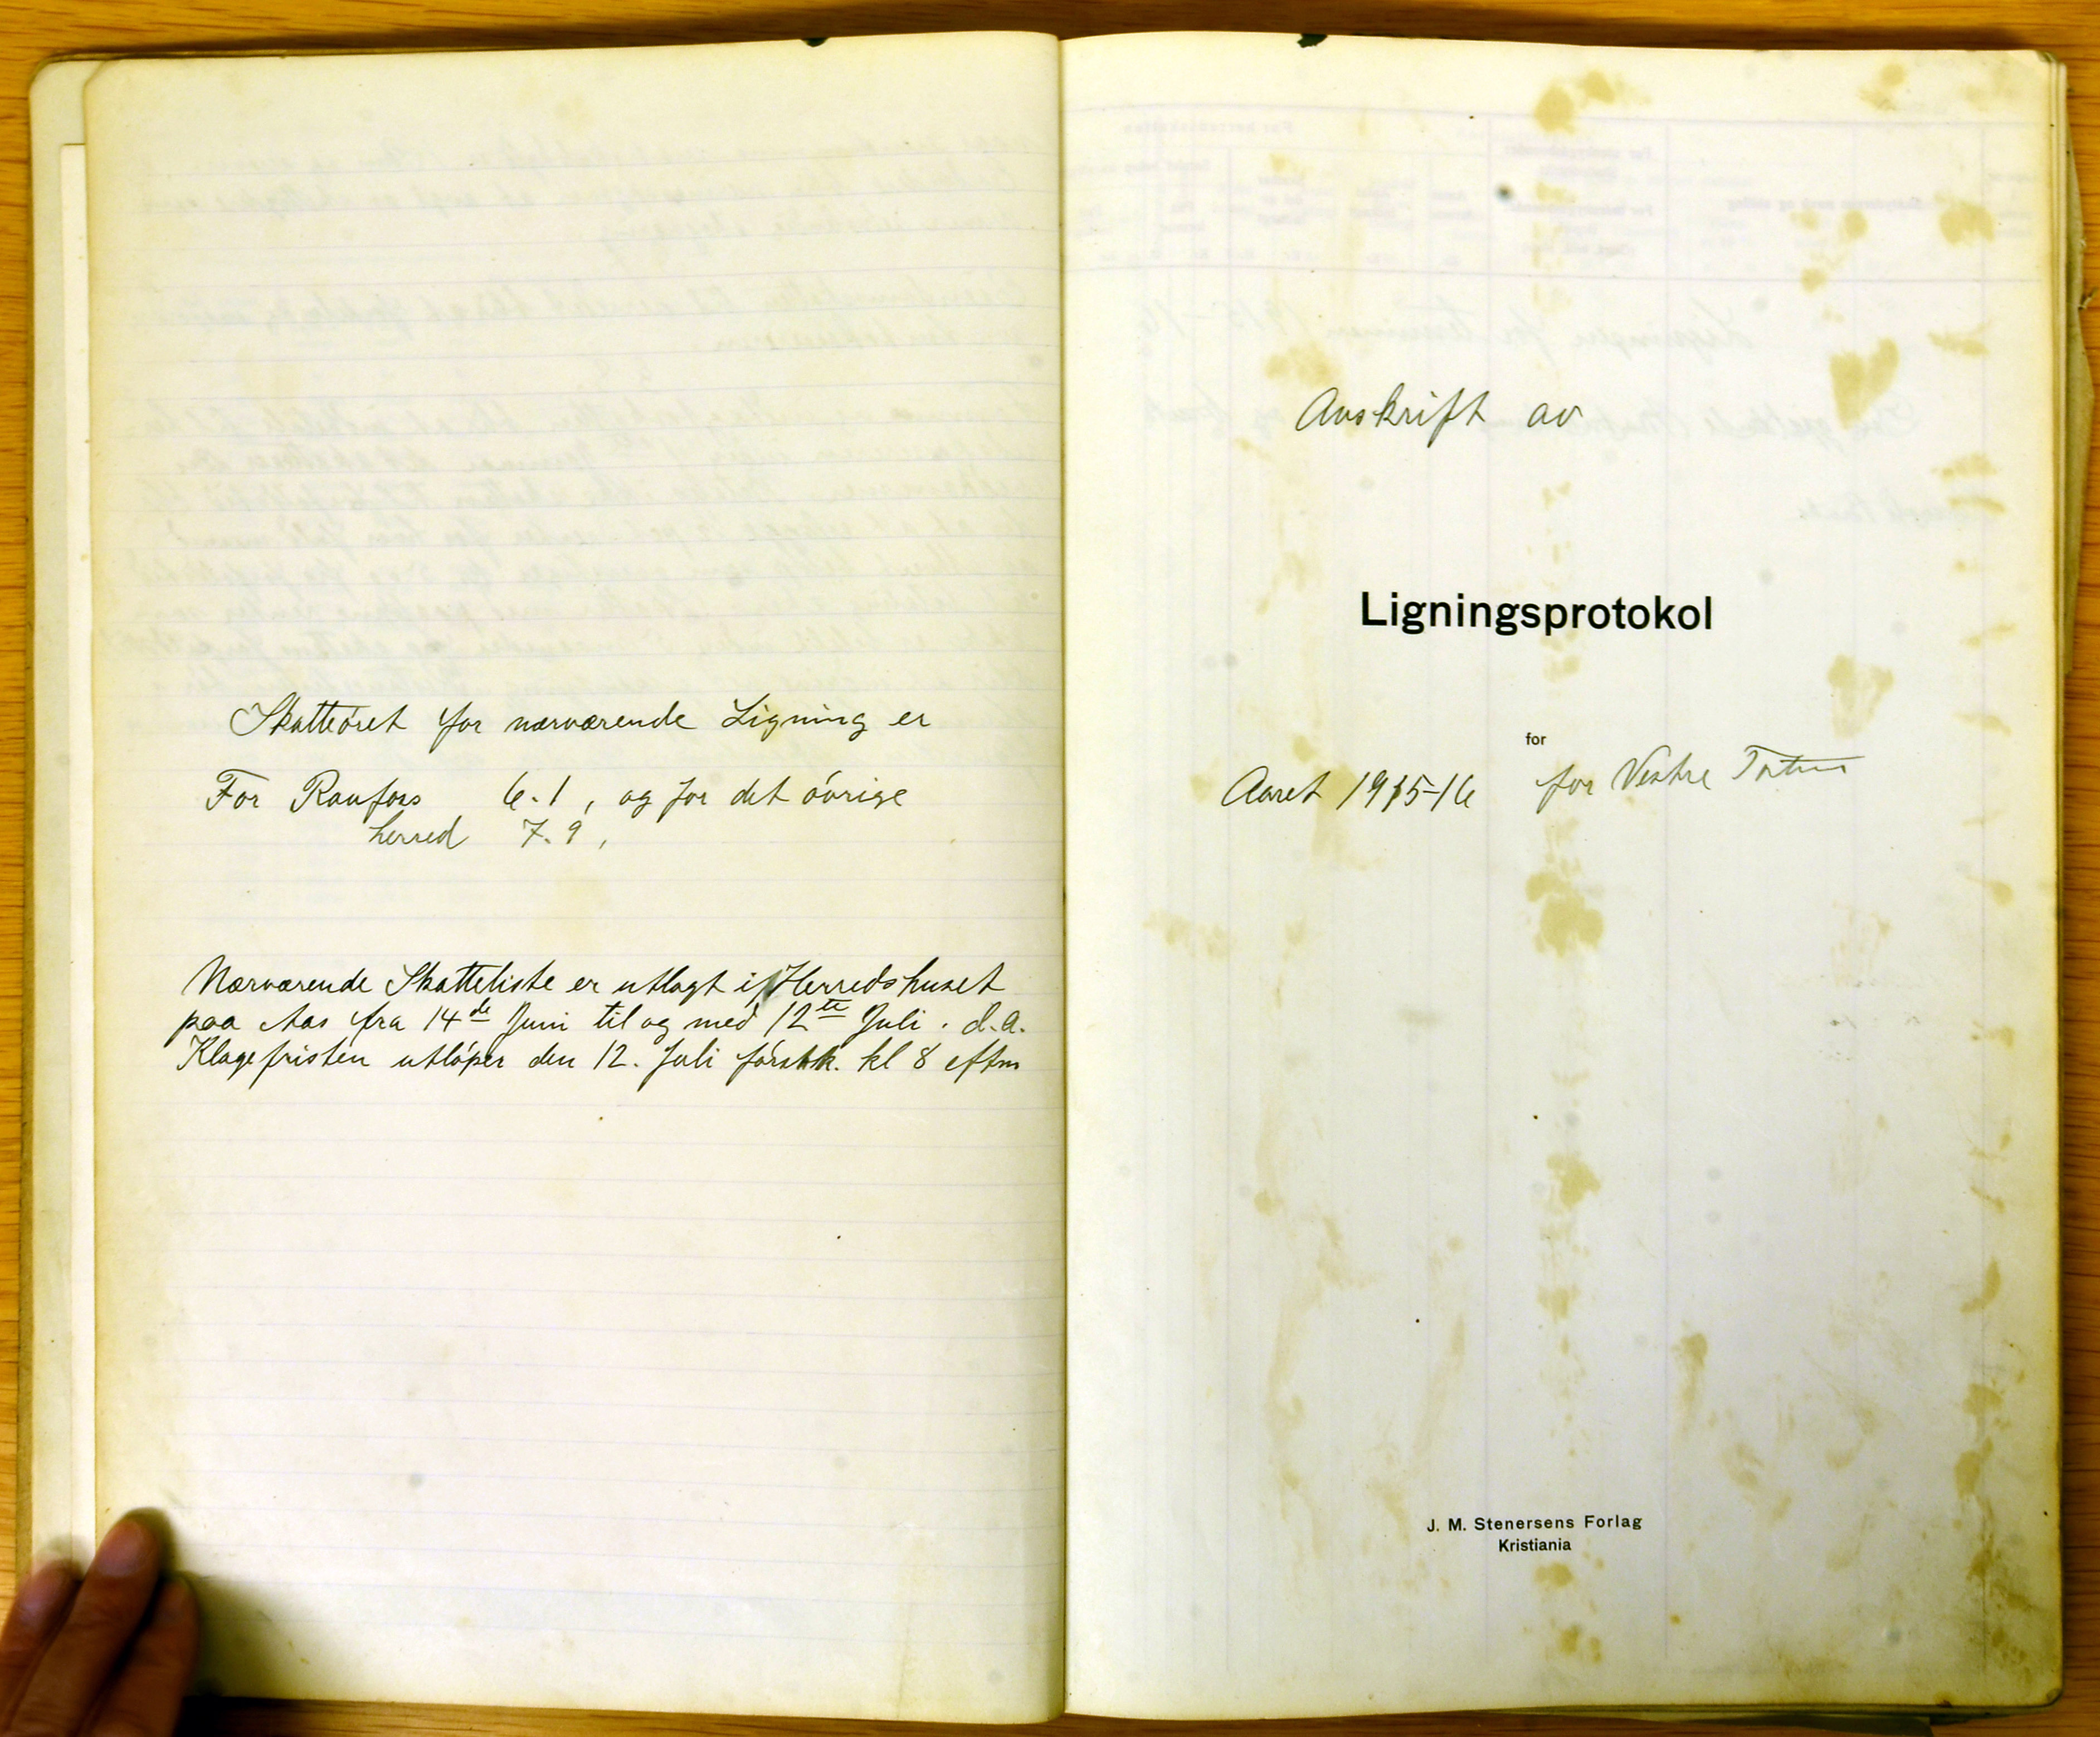 Skatteøret for nærværende Ligning er
For Raufoss 6.1, og for det øvrige
herred 7.9,
Nærværende Skatteliste er utlagt i Herredshuset
paa Aas fra 14de Juni til og med 12te Juli . d.a.
Klagefristen utløper den 12. Juli førstk. kl 8 eftm
Avskrift av
Ligningsprotokol
for
Aaret 1915-16 for Vestre Toten
J. M. Stenersens Forlag
Kristiania